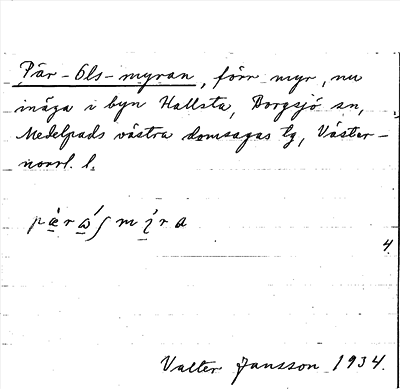 Pär-Ols-myran, förr myr, nu
inäga i byn Hallsta, Borgsjö sn,
Medelpads västra domsagas tg, Väster-
norrl. l.
4
Valter Jansson 1934.